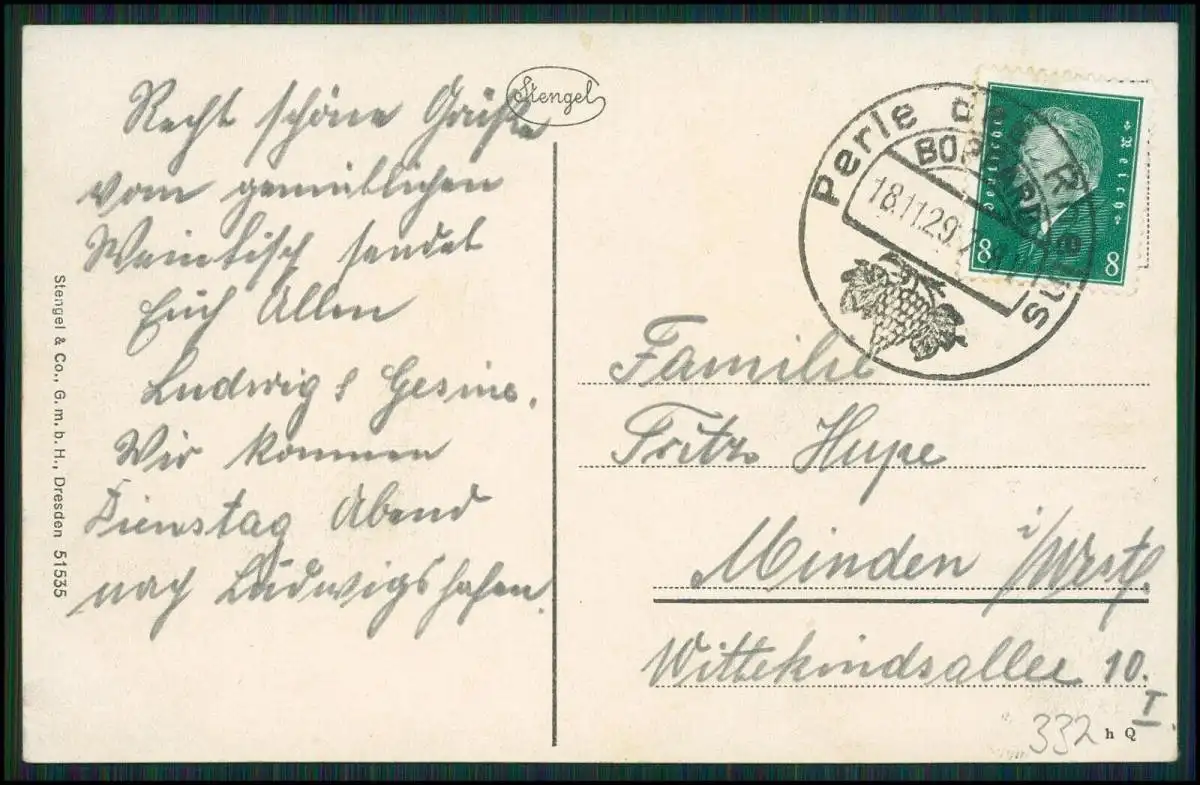 Recht schöne Grüße
vom gemütlichen
Weintisch sendet
Euch Allen
Ludwig & Gesine.
Wir kommen
Dienstag Abend
nach Ludwigshafen.
Stengel
Stengel & Co., G. m. b. H., Dresden 51535
Perle
18.11.29
Deutsches Reich
8 8
Familie
Fritz Hupe
Minden i/Westf.
Wittekindsallee 10.
I
332
h Q